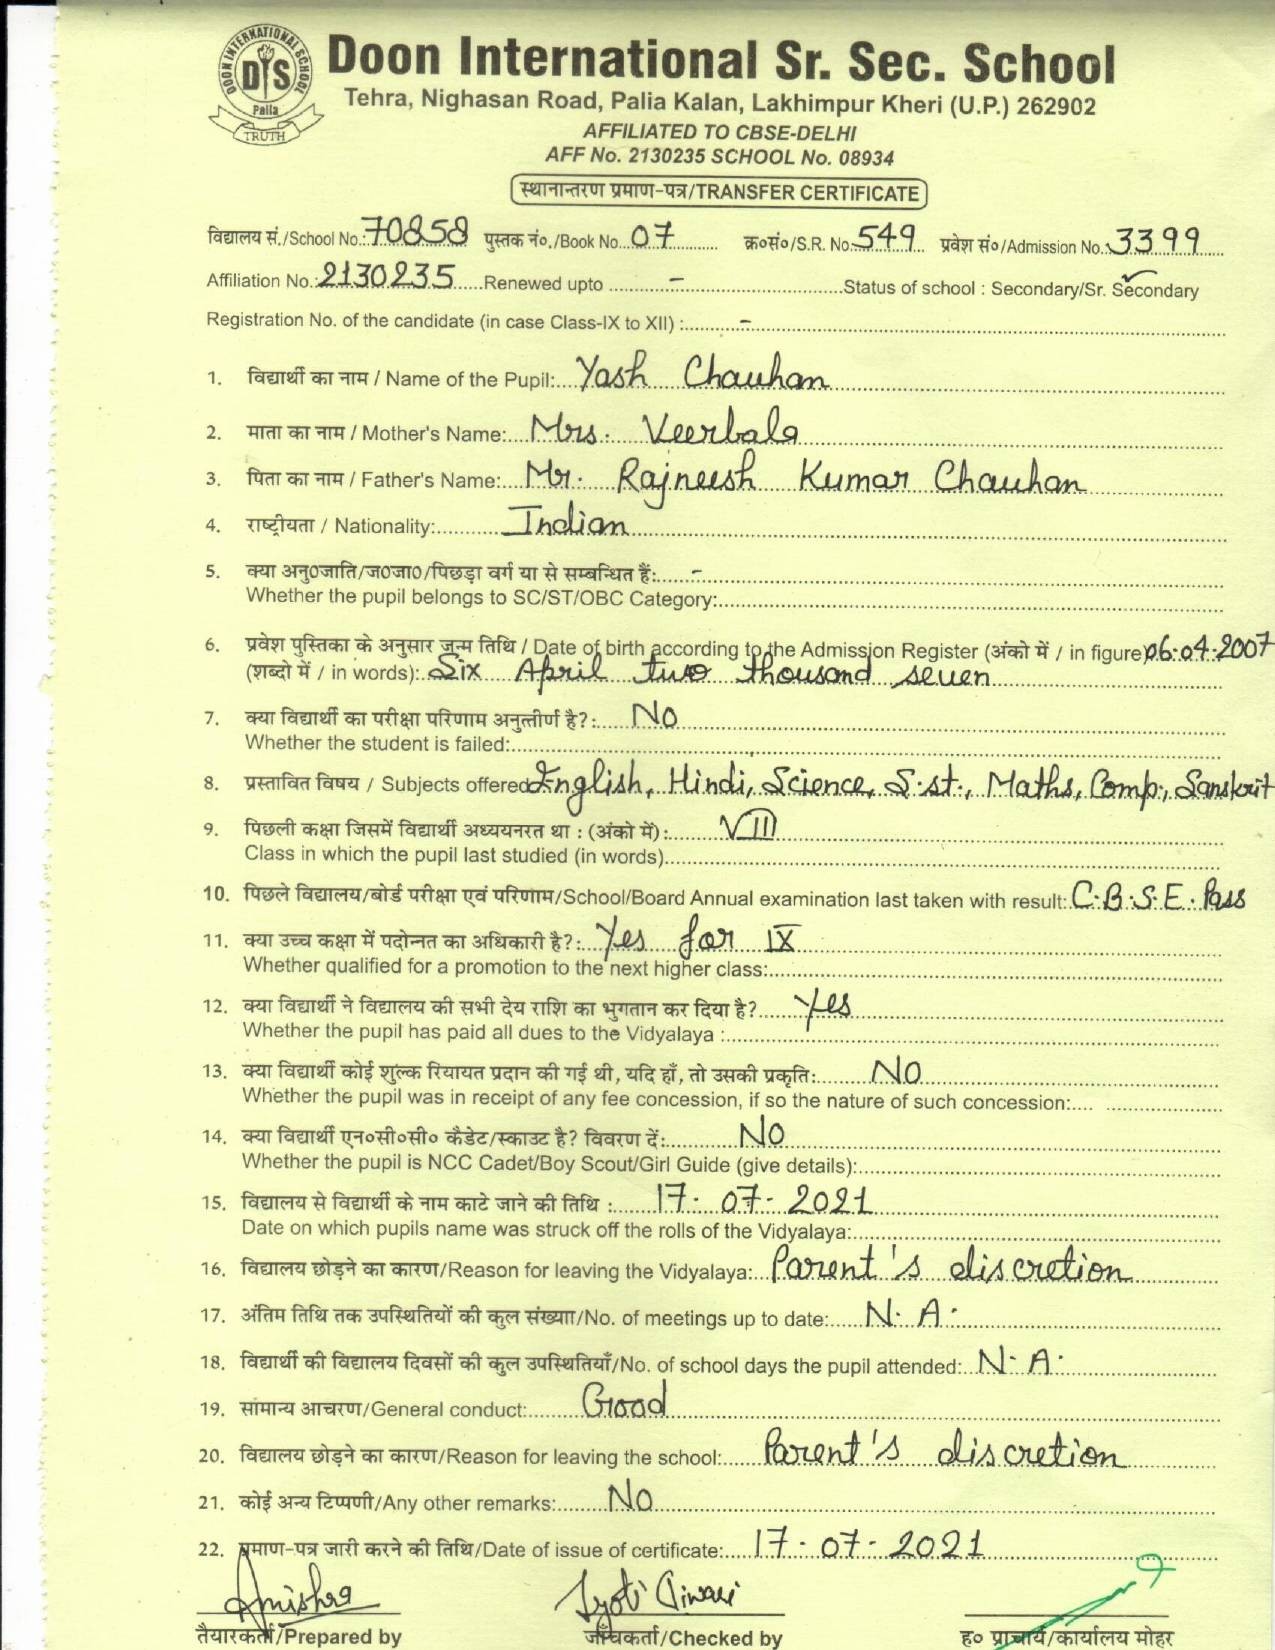 DOON INTERNATIONAL SCHOOL
DIS
Palia
TRUTH
Doon International Sr. Sec. School
Tehra, Nighasan Road, Palia Kalan, Lakhimpur Kheri (U.P.) 262902
AFFILIATED TO CBSE-DELHI
AFF No. 2130235 SCHOOL No. 08934
स्थानान्तरण प्रमाण-पत्र/TRANSFER CERTIFICATE
विद्यालय सं./School No.: 70858 पुस्तक नं०./Book No... 07 क्र०सं०/S.R. No. 549 प्रवेश सं०/Admission No.: 3399
Affiliation No.: 2130235 Renewed upto - Status of school : Secondary/Sr. Secondary
Registration No. of the candidate (in case Class-IX to XII) : -
1. विद्यार्थी का नाम / Name of the Pupil: Yash Chauhan
2. माता का नाम / Mother's Name: Mrs. Veerbala
3. पिता का नाम / Father's Name: Mr. Rajneesh Kumar Chauhan
4. राष्ट्रीयता / Nationality: Indian
5. क्या अनु०जाति/ज०जा०/पिछड़ा वर्ग या से सम्बन्धित हैं: -
Whether the pupil belongs to SC/ST/OBC Category:
6. प्रवेश पुस्तिका के अनुसार जन्म तिथि / Date of birth according to the Admission Register (अंको में / in figure) 06.04.2007
(शब्दो में / in words): Six April two thousand seven
7. क्या विद्यार्थी का परीक्षा परिणाम अनुत्तीर्ण है?: No
Whether the student is failed:
8. प्रस्तावित विषय / Subjects offered: English, Hindi, Science, S.st., Maths, Comp., Sanskrit
9. पिछली कक्षा जिसमें विद्यार्थी अध्ययनरत था : (अंको में): VIII
Class in which the pupil last studied (in words)
10. पिछले विद्यालय/बोर्ड परीक्षा एवं परिणाम/School/Board Annual examination last taken with result: C.B.S.E. Pass
11. क्या उच्च कक्षा में पदोन्नत का अधिकारी है?: Yes for IX
Whether qualified for a promotion to the next higher class:
12. क्या विद्यार्थी ने विद्यालय की सभी देय राशि का भुगतान कर दिया है? Yes
Whether the pupil has paid all dues to the Vidyalaya :
13. क्या विद्यार्थी कोई शुल्क रियायत प्रदान की गई थी, यदि हाँ, तो उसकी प्रकृति: NO
Whether the pupil was in receipt of any fee concession, if so the nature of such concession:
14. क्या विद्यार्थी एन०सी०सी० कैडेट/स्काउट है? विवरण दें: NO
Whether the pupil is NCC Cadet/Boy Scout/Girl Guide (give details):
15. विद्यालय से विद्यार्थी के नाम काटे जाने की तिथि : 17-07-2021
Date on which pupils name was struck off the rolls of the Vidyalaya:
16. विद्यालय छोड़ने का कारण/Reason for leaving the Vidyalaya: Parent's discretion
17. अंतिम तिथि तक उपस्थितियों की कुल संख्याा/No. of meetings up to date: N.A.
18. विद्यार्थी की विद्यालय दिवसों की कुल उपस्थितियाँ/No. of school days the pupil attended: N.A.
19. सामान्य आचरण/General conduct: Good
20. विद्यालय छोड़ने का कारण/Reason for leaving the school: Parent's discretion
21. कोई अन्य टिप्पणी/Any other remarks: No
22. प्रमाण-पत्र जारी करने की तिथि/Date of issue of certificate: 17-07-2021
Jyoti Tiwari
तैयारकर्ता/Prepared by जाँचकर्ता/Checked by ह० प्राचार्य/कार्यालय मोहर